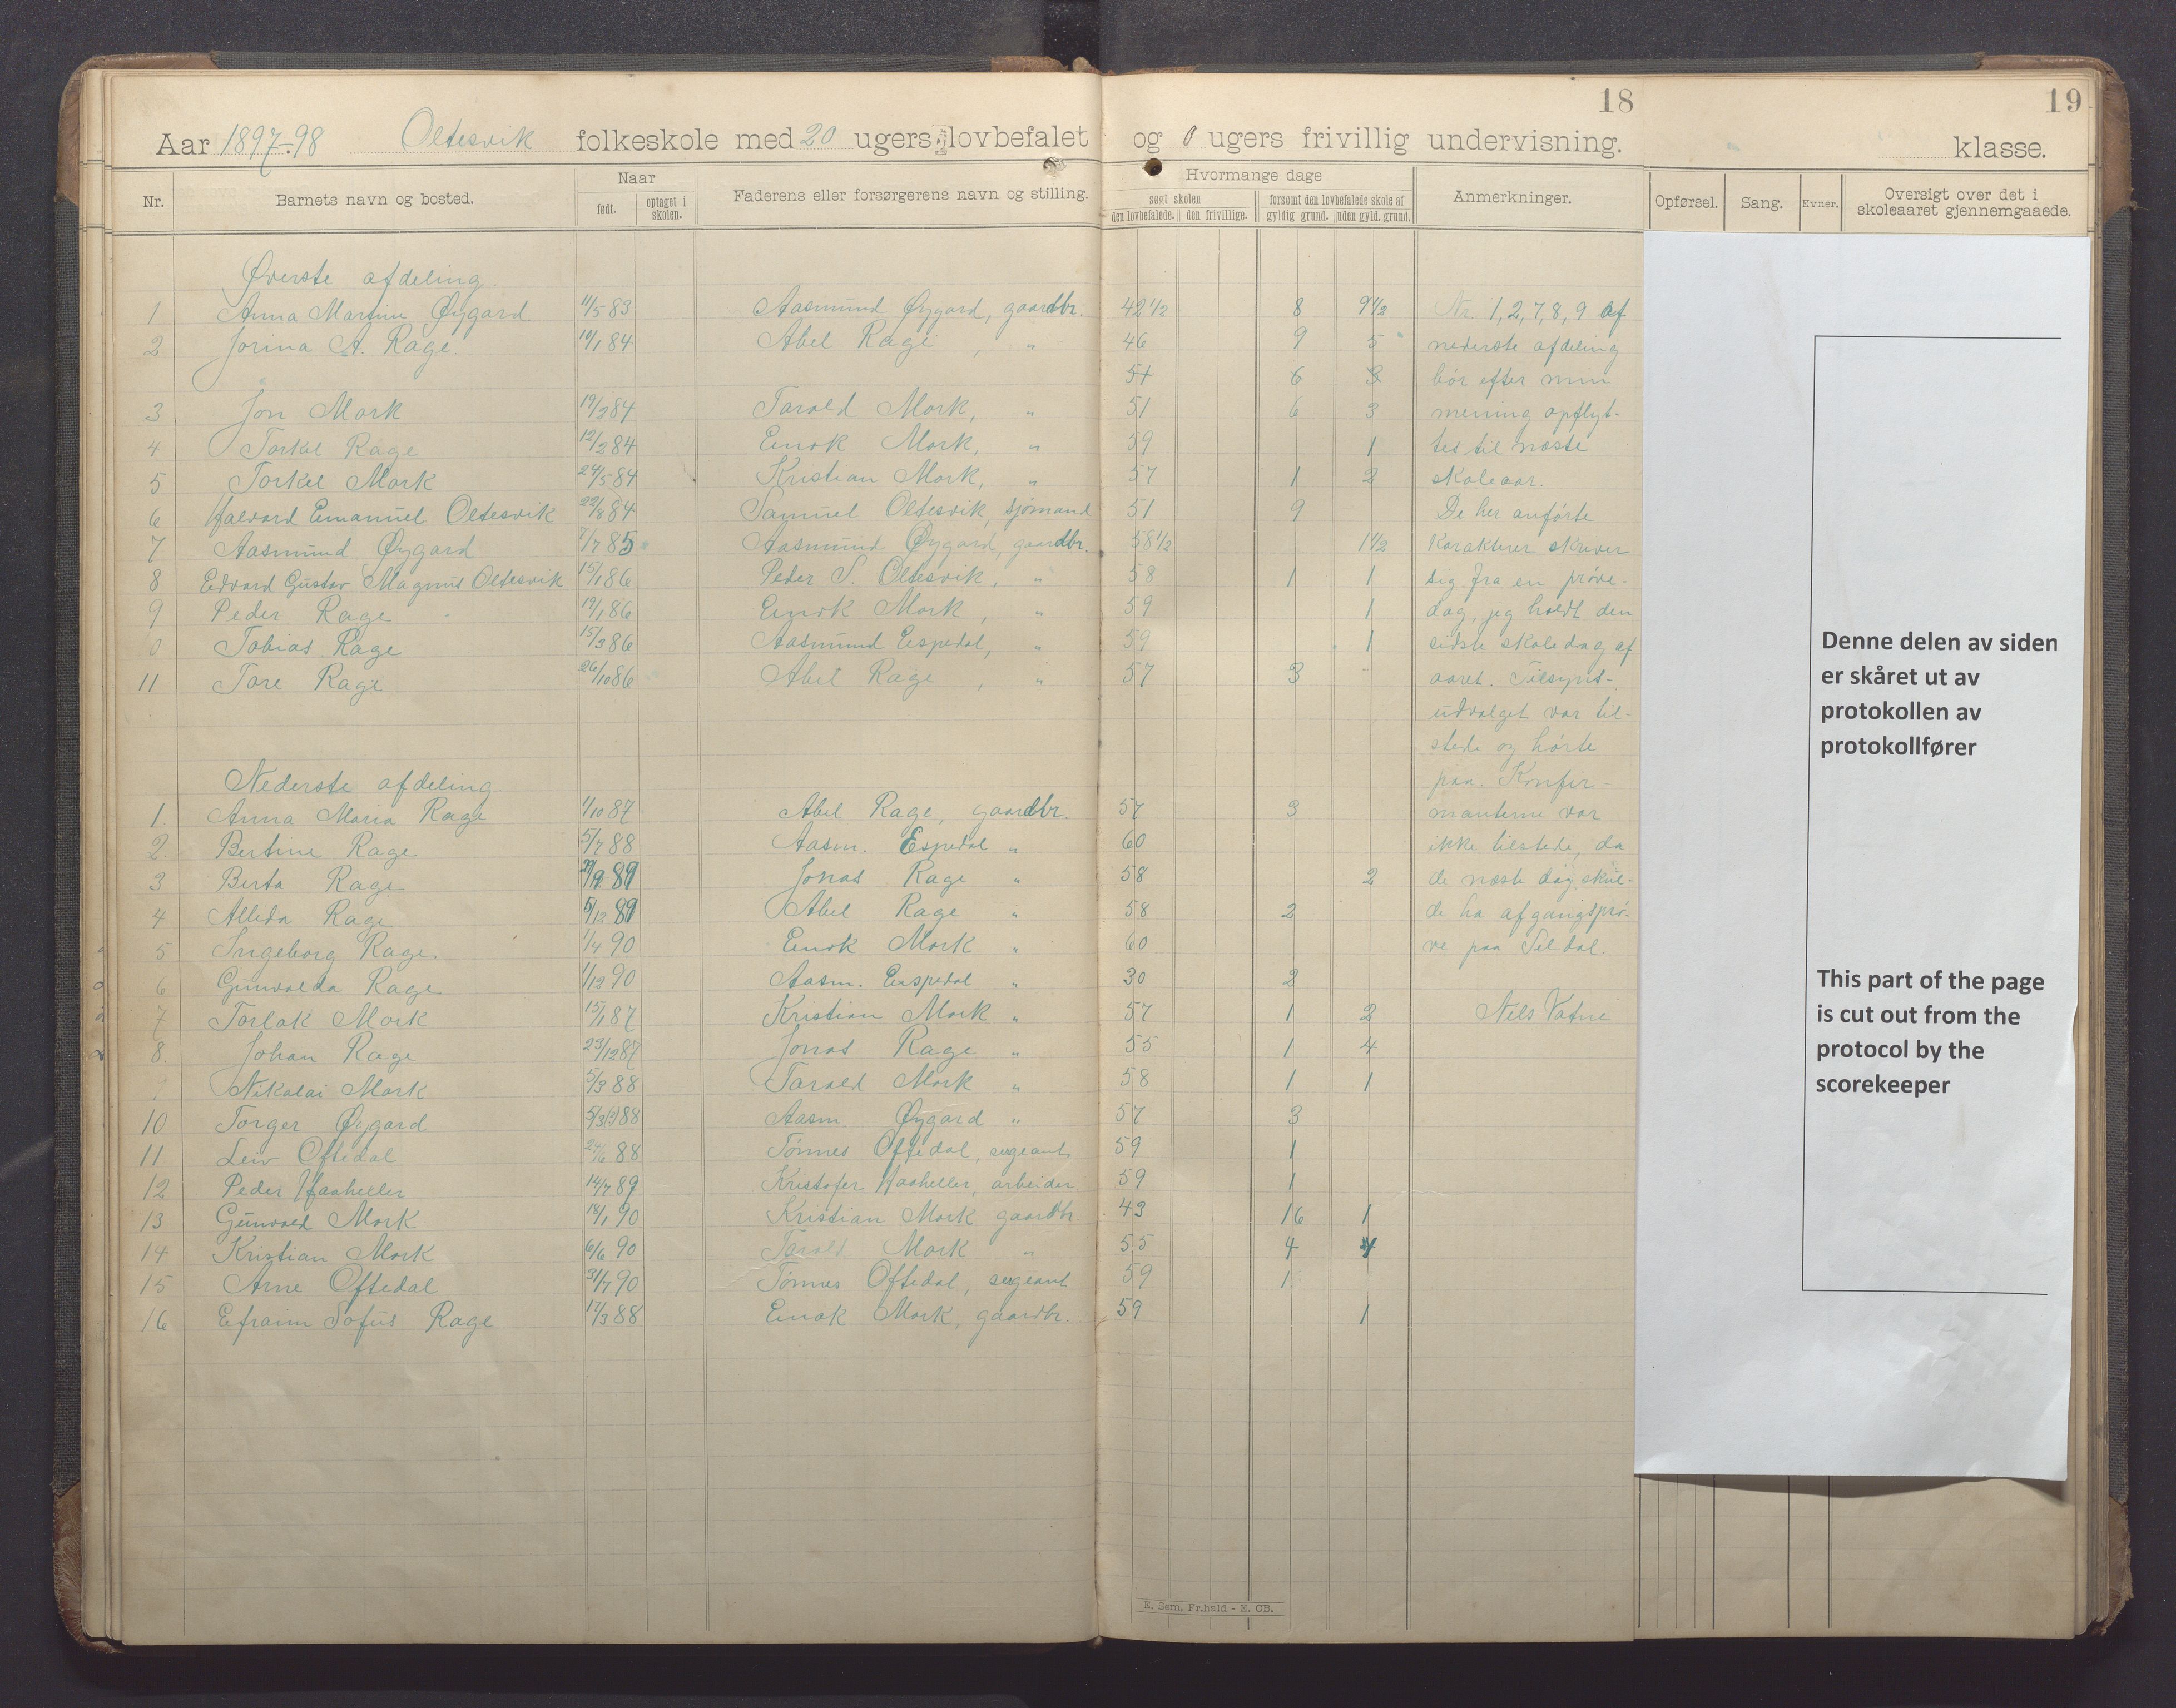 18
19
Aar 1897-98 Oltesvik folkeskole med 20 ugers lovbefalet og 0 ugers frivillig undervisning.
klasse.
Nr. Barnets navn og bosted. Naar født. optaget i skolen. Faderens eller forsørgerens navn og stilling. Hvormange dage søgt skolen den lovbefalede. den frivillige. forsømt den lovbefalede skole af gyldig grund. uden gyld. grund. Anmerkninger. Opførsel. Sang. Evner. Oversigt over det i skoleaaret gjennemgaaede.
Øverste afdeling.
1 Anna Martine Øygard 11/5 83 Aasmund Øygard, gaardbr. 42 1/2 8 9 1/2 Nr. 1, 2, 7, 8, 9 af
2 Jorina A. Rage. 84 Abel Rage, " 46 9 5 nederste afdeling
51 6 3 bør efter min
3 Jon Mork 19/2 84 Tarald Mork, " 51 6 3 mening opflyt-
4 Torkel Rage 12/2 84 Enok Mork, " 59 1 tes til næste
5 Torkel Mork 24/5 84 Kristian Mork, " 57 1 2 skoleaar.
6 Halvard Emanuel Oltesvik 22/8 84 Samuel Oltesvik, sjømand 51 9 De her anførte
7 Aasmund Øygard 7/7 85 Aasmund Øygard, gaardbr. 58 1/2 1 1/2 karakterer skriver
8 Edvard Gustav Magnus Oltesvik 15/1 86 Peder S. Oltesvik, " 58 1 1 sig fra en prøve-
9 Peder Rage 19/1 86 Enok Mork, " 59 1 dag, jeg holdt den
0 Tobias Rage 15/3 86 Aasmund Espedal, " 59 1 sidste skoledag af
11 Tore Rage 26/10 86 Abel Rage, " 57 3 aaret. Tilsyns-
udvalget var til-
stede og hørte
paa. Konfir-
Nederste afdeling
1. Anna Maria Rage 1/10 87 Abel Rage, gaardbr. 57 3 manterne var
2. Bertine Rage 5/7 88 Aasm. Espedal " 60 ikke tilstede, da
3 Berta Rage 89 Jonas Rage " 58 2 de næste dag skul-
4 Allida Rage 5/12 89 Abel Rage " 58 2 de ha afgangsprø-
5 Ingeborg Rage. 1/4 90 Enok Mork " 60 ve paa Seldal.
6 Gunvalda Rage 1/12 90 Aasm. Espedal " 30 2
7 Torlak Mork 15/1 87 Kristian Mork " 57 1 2 Nels Vatne
8. Johan Rage 23/12 87 Jonas Rage " 55 1 4
9 Nikolai Mork 5/3 88 Tarald Mork " 58 1 1
10 Torger Øygard 88 Aasm. Øygard " 57 3
11 Leiv Oftedal 88 Tønnes Oftedal, sergeant 59 1
12 Peder Haaheller 14/7 89 Kristofer Haaheller, arbeider 59 1
13 Gunvald Mork 18/1 90 Kristian Mork gaardbr. 43 16 1
14 Kristian Mork 6/6 90 Tarald Mork " 55 4 4
15 Arne Oftedal 31/7 90 Tønnes Oftedal, sergeant 59 1
16 Efraim Sofus Rage 88 Enok Mork, gaardbr. 59 1
Denne delen av siden
er skåret ut av
protokollen av
protokollfører
This part of the page
is cut out from the
protocol by the
scorekeeper
E. Sem, Fr.hald - E. CB.